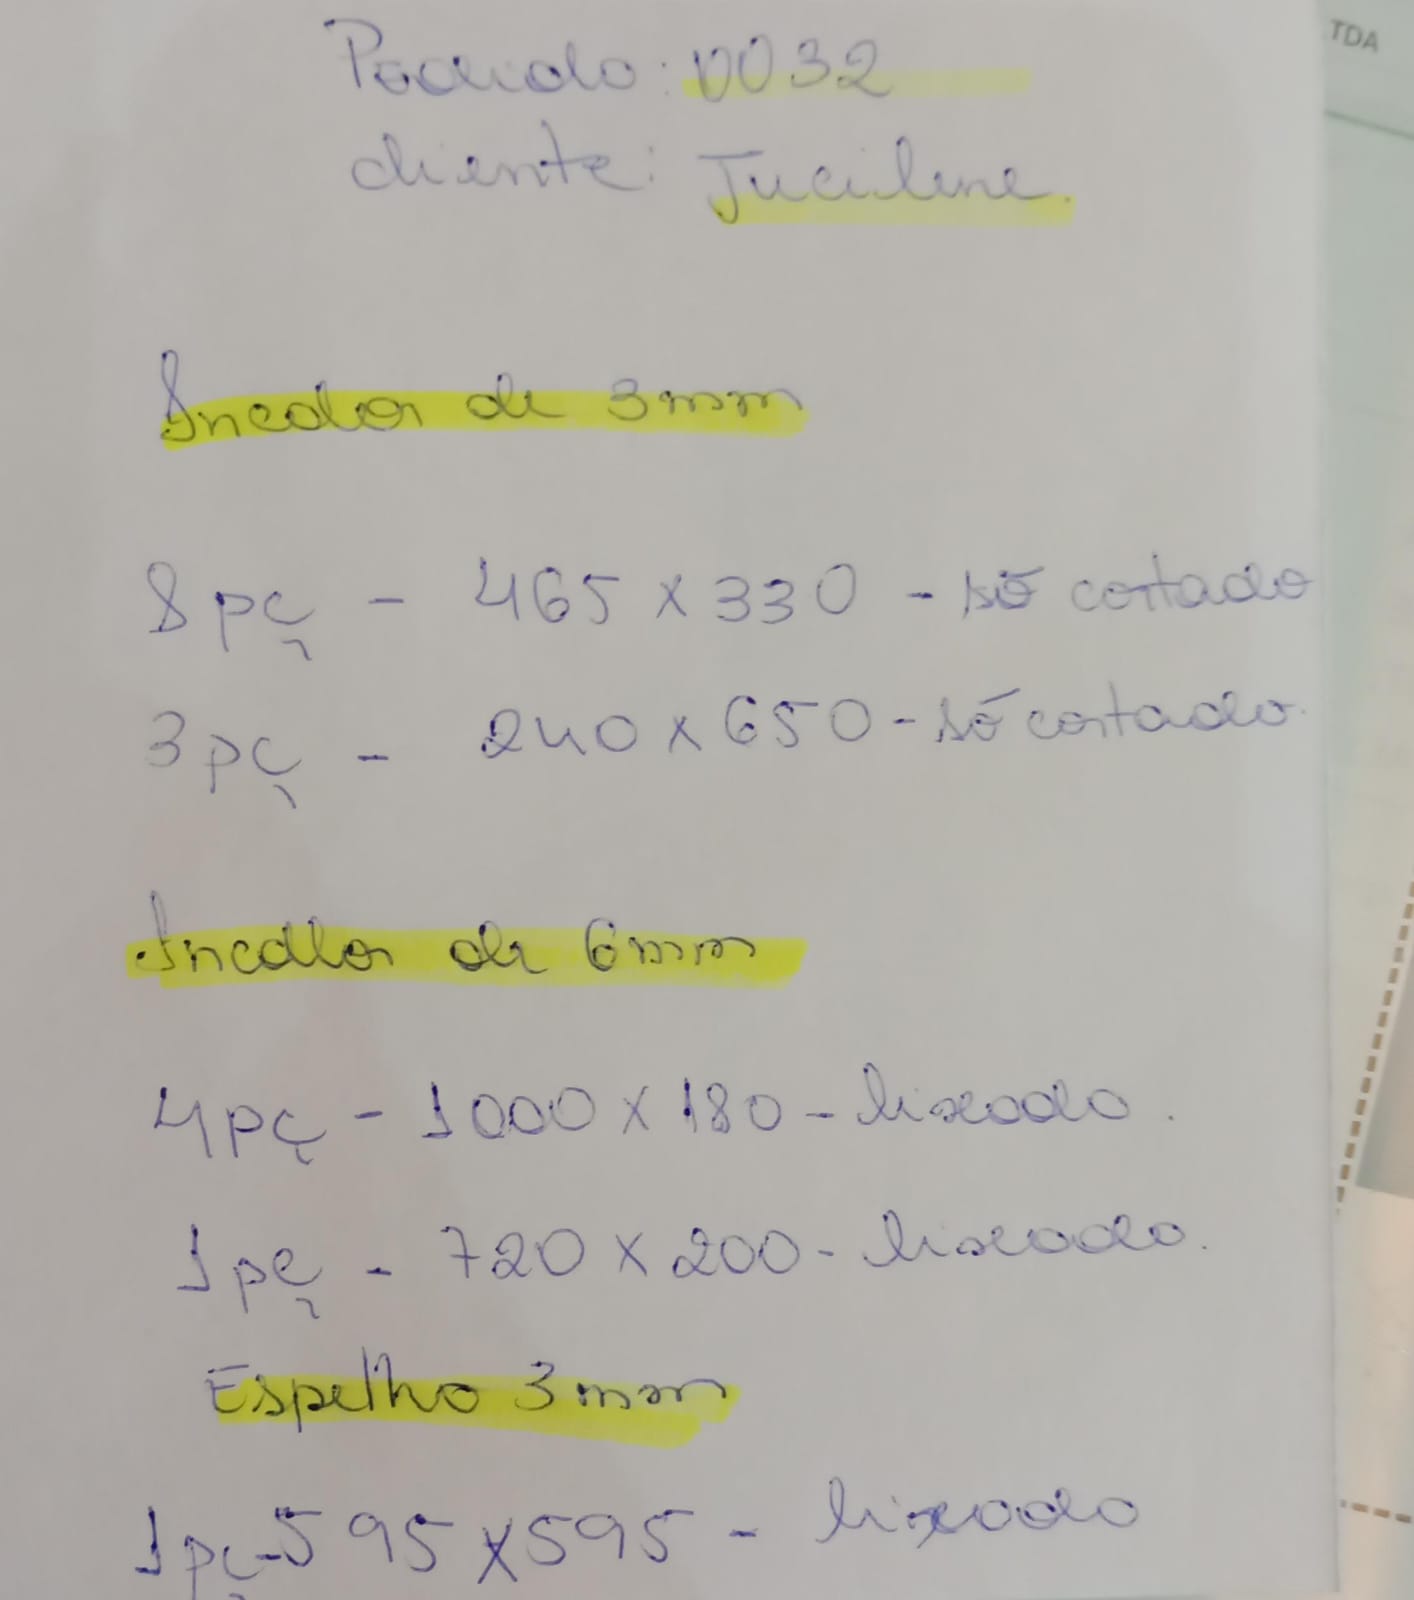 TDA
Pedido: 0032
cliente: Jucilene.
Incolor de 3mm
8 pç - 465 x 330 - só cortado
3 pç - 240 x 650 - só cortado.
Incolor de 6mm
4 pç - 1000 x 180 - lixado.
1 pç - 720 x 200 - lixado.
Espelho 3mm
1 pç - 595 x 595 - lixado